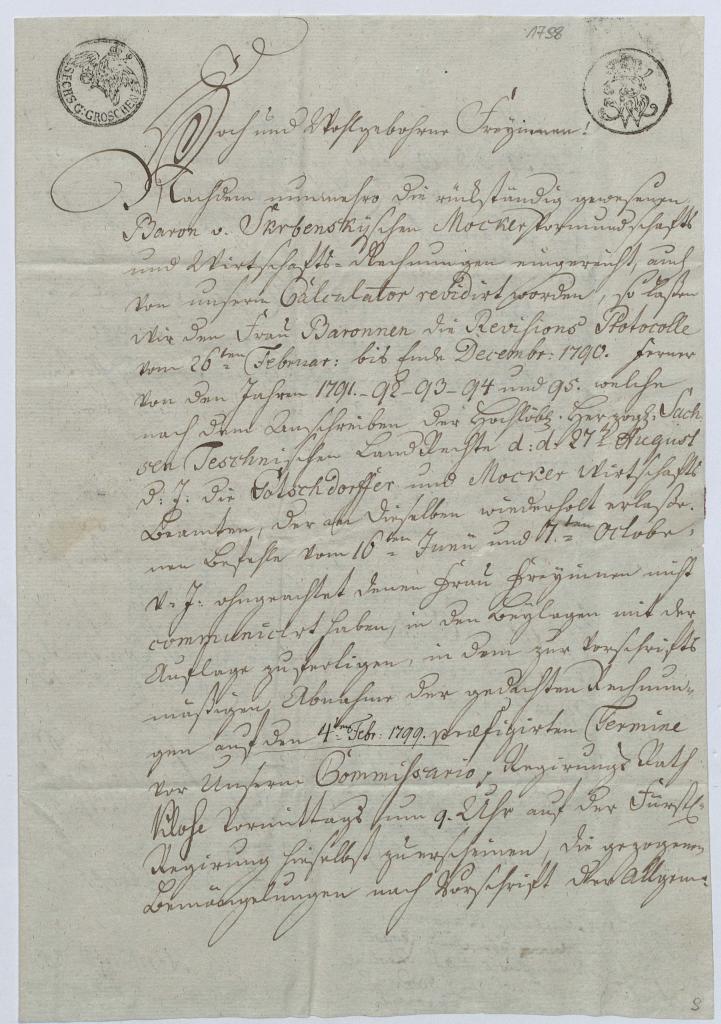 1798
SECHS G: GROSCHEN
Hoch und Wohlgebohrne Freyinnen!
Nachdem nunmehro die rückständig gewesenen
Baron v. Skrbenskyschen Mocker Vormundschafts
und Wirtschafts-Rechnungen eingereicht, auch
von unserm Calculator revidirt worden, so lassen
Wir den Frau Baronnen die Revisions Protocolle
vom 26ten Februar: bis Ende Decembr: 1790. ferner
von den Jahren 1791.-92-93-94 und 95. welche
nach dem Anschreiben der Hochlöbl. Herzogl: Sach
sen Teschnischen LandRechte d: d: 27t August
d: J: die Gotschdorffer und Mocker Wirtschafts
Beamten, der an dieselben wiederholt erlaße-
nen Befehle vom 16ten Juny und 17.ten Octobr:
v: J: ohngeachtet denen Frau Freyinnen nicht
communicirt haben, in den Beylagen mit der
Auflage zufertigen, in dem zur Vorschrifts
mäßigen Abnahme der gedachten Rechnun-
gen auf den 4ten Febr: 1799. praefigirten Termine
vor Unserm Commissario, Regirungs Rath
Klose Vormittags um 9. Uhr auf der Fürstl:
Regirung hieselbst zu erscheinen, die gezogenen
Bemängelungen nach Vorschrift der Allgem:
8